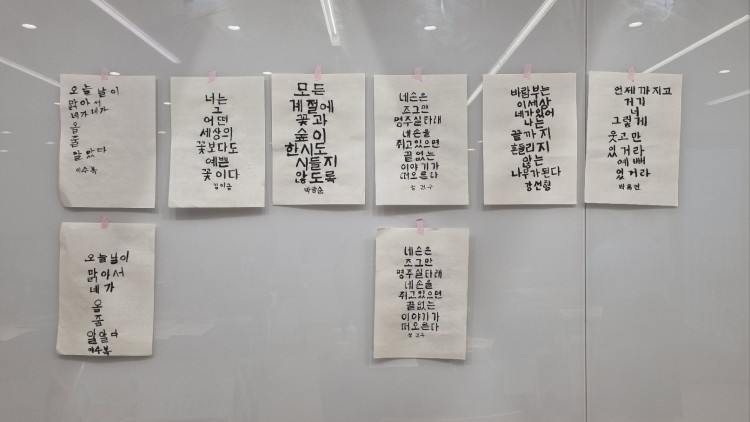 오늘 날이
맑아서
네가 네가
옴
줄
알았다
이수복
너는
그
어떤
세상의
꽃보다도
예쁜
꽃이다
모든
계절에
꽃과
숲이
한시도
시들지
않도록
네손은
조그만
명주실타래
네손을
쥐고있으면
끝없는
이야기가
떠오른다
바람부는
이세상
네가있어
나는
끝까지
흔들리지
않는
나무가된다
강선항
언제까지고
거기
너
그렇게
웃고만
있거라
예뻐
있거라
오늘날이
맑아서
네가
옴
줄
알았다
이수복
네손은
조그만
명주실타래
네손을
쥐고있으면
끝없는
이야기가
떠오른다